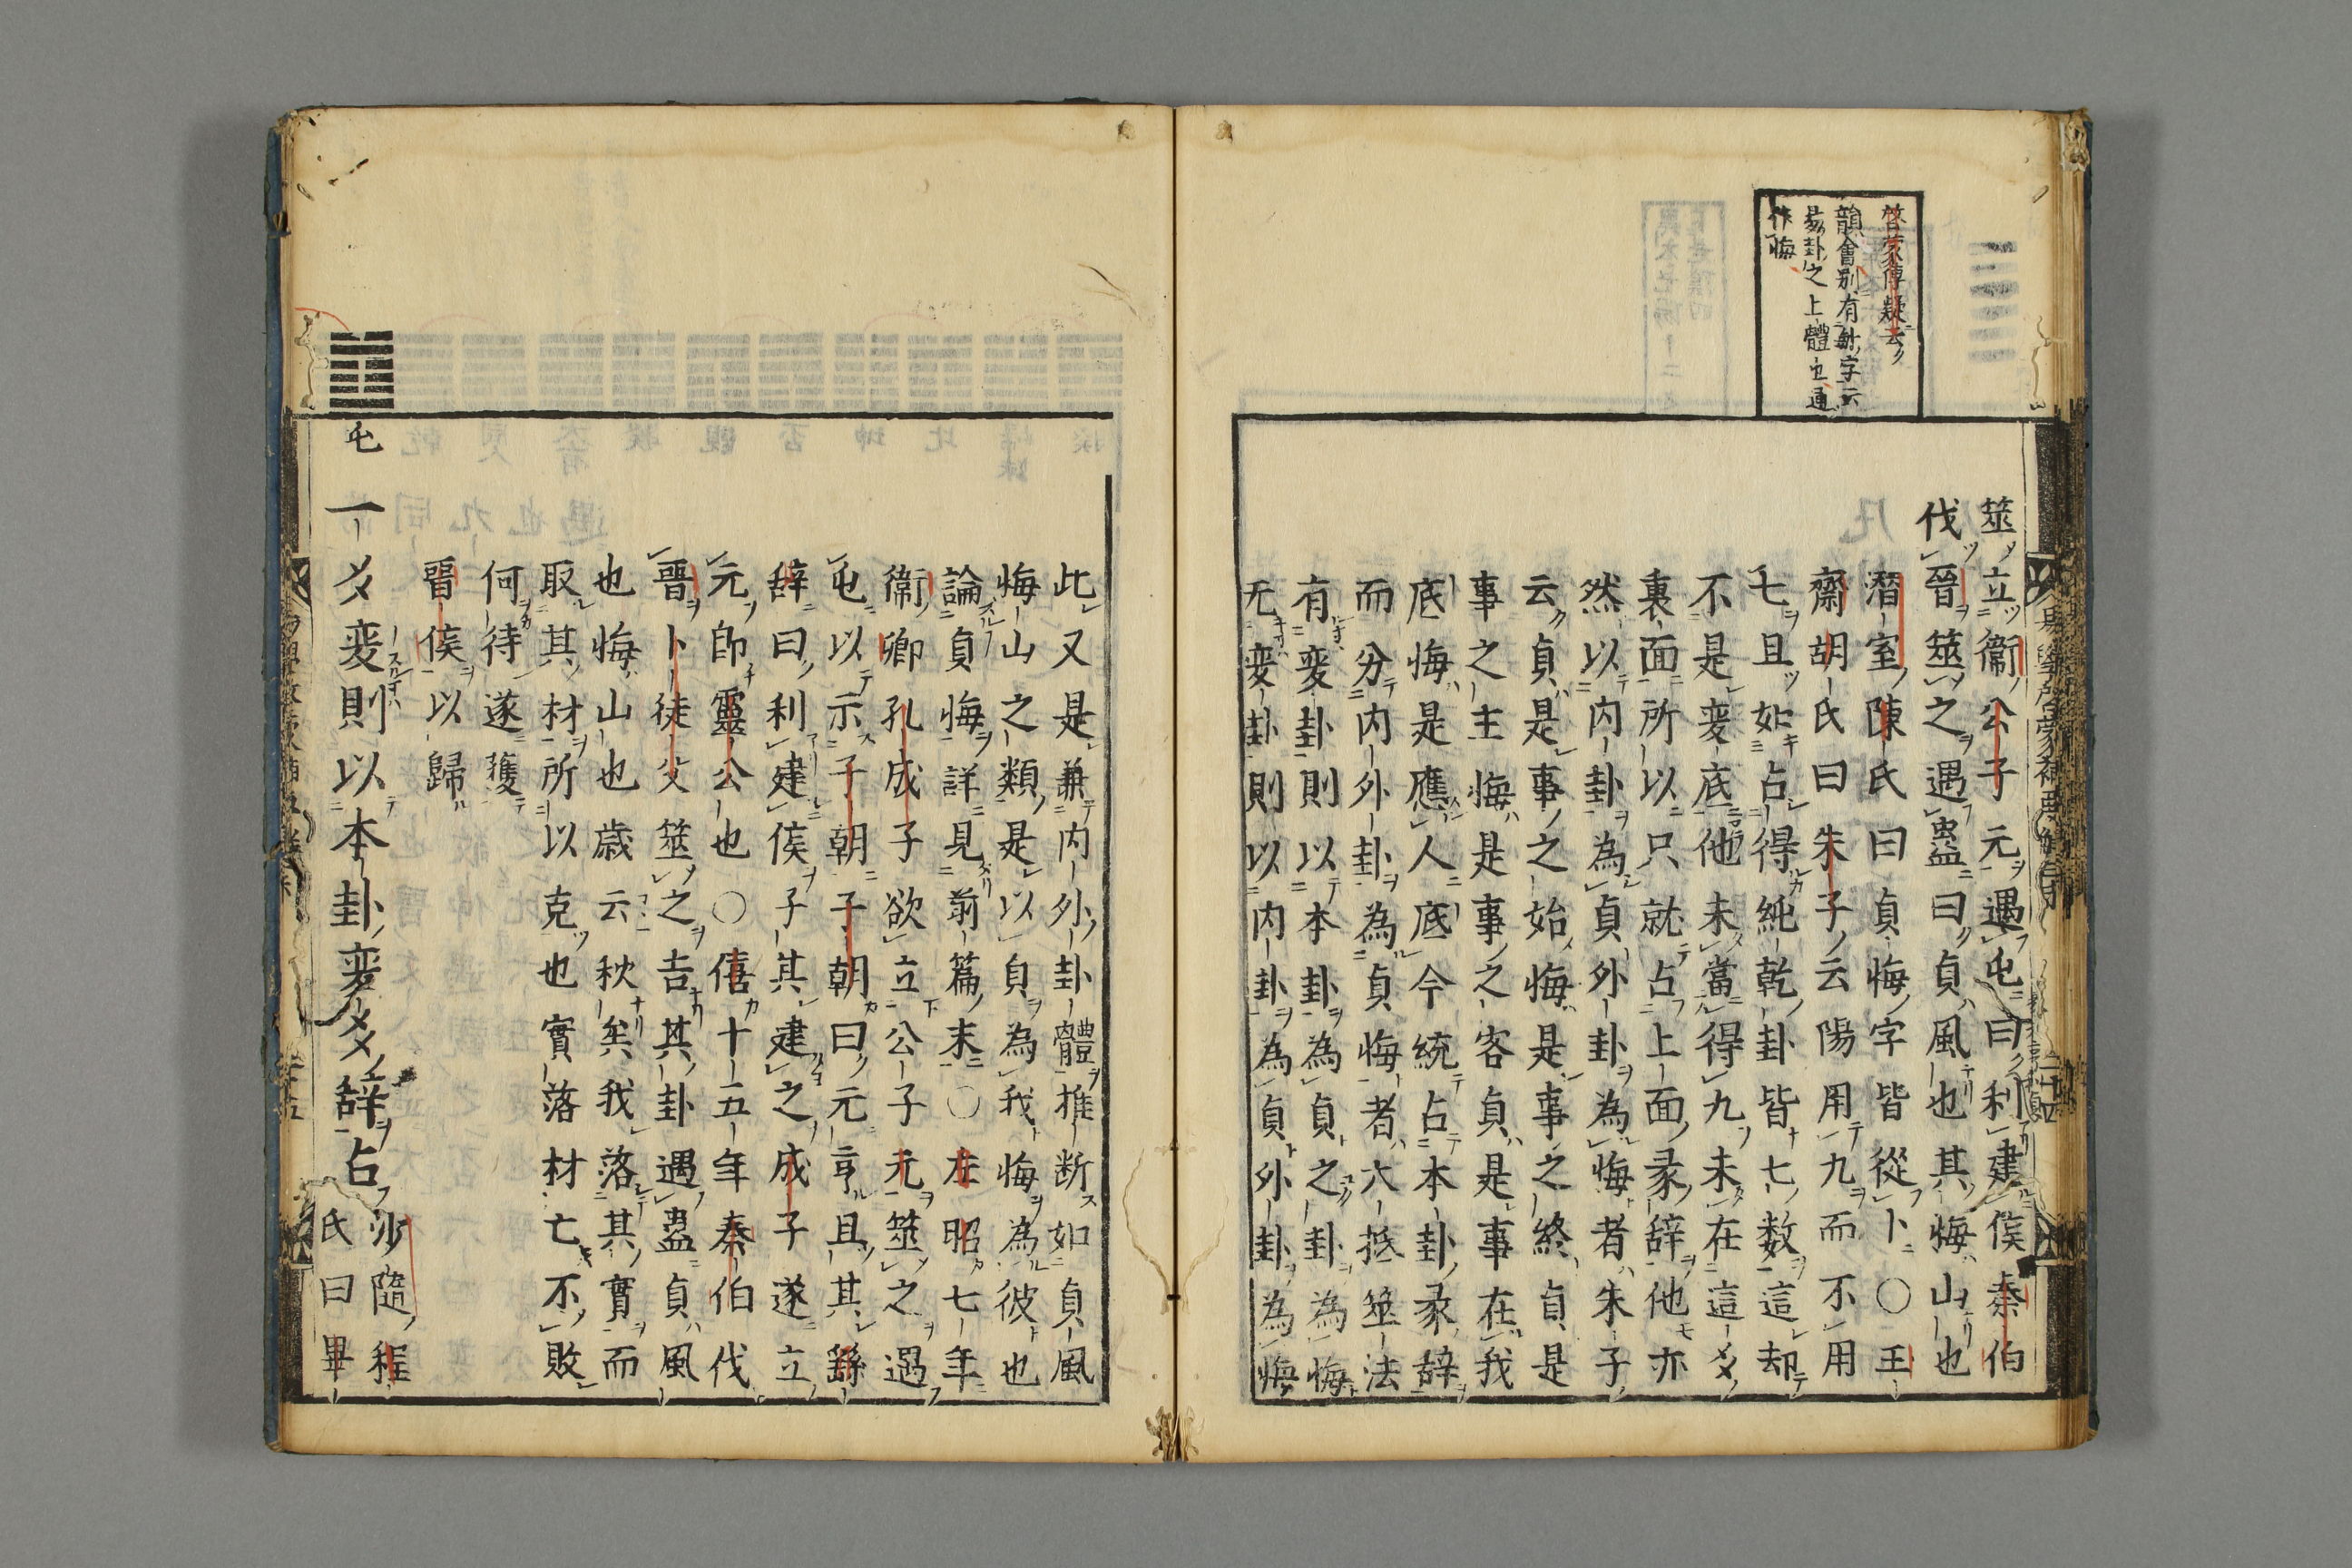 啓蒙傳疑云
韻會別有𠧩字云
易卦之上體也通
作悔
筮立衞公子元遇屯曰利建侯秦伯
伐晉筮之遇蠱曰貞風也其悔山也
潛室陳氏曰貞悔字皆從卜○王
齋胡氏曰朱子云陽用九而不用
七且如占得純乾卦皆七数這却
不是変底他未當得九未在這爻
裏面所以只就占上面彖辞他亦
然以内卦為貞外卦為悔者朱子
云貞是事之始悔是事之終貞是
事之主悔是事之客貞是事在我
底悔是應人底今統占本卦彖辞
而分内外卦為貞悔者六抵筮法
有変卦則以本卦為貞之卦為悔
无変卦則以内卦為貞外卦為悔
此又是兼内外卦體推断如貞風
悔山之類是以貞為我悔為彼也
論貞悔詳見前篇末○左昭七年
衞卿孔成子欲立公子元筮之遇
屯以示子朝子朝曰元亨且其繇
辞曰利建侯子其建之成子遂立
元即靈公也○僖十五年秦伯伐
晉卜徒父筮之吉其卦遇蠱貞風
也悔山也歳云秋矣我落其實而
取其材所以克也實落材亡不敗
何待遂獲
晋侯以歸
屯
一爻変則以本卦変爻辞占
沙隨程
氏曰畢